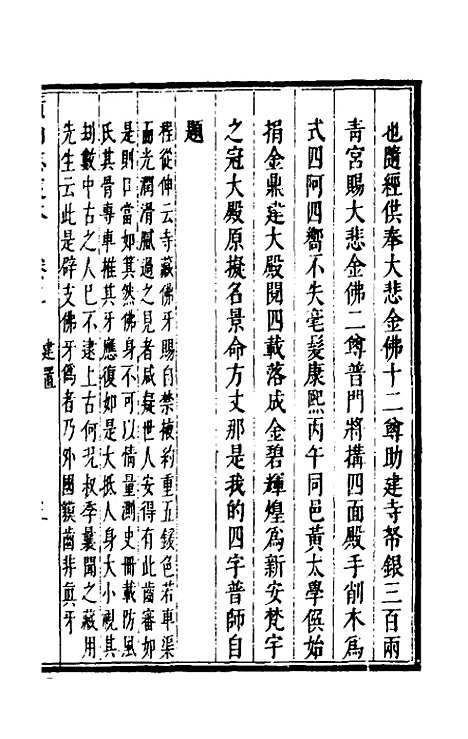 也隨經供奉大悲金佛十二尊助建寺帑銀三百兩
青宮賜大悲金佛二尊普門將搆四面殿手削木為
式四阿四嚮不失毫髮康熙丙午同邑黃太學僎始
捐金鼎建大殿閱四載落成金碧輝煌為新安梵宇
之冠大殿原擬名景命方丈那是我的四字普師自
題
程從伸云寺藏佛牙賜自禁掖約重五鍰色若車渠
而光潤滑膩過之見者咸疑世人安得有此齒審如
是則日當如箕然佛身不可以倩量測史冊載防風
氏其骨專車推其牙應復如是大抵人身大小視其
刼數中古之人已不逮上古何况叔季曩聞之藏用
先生云此是辟支佛牙偽者乃外國獏齒非真牙
建置